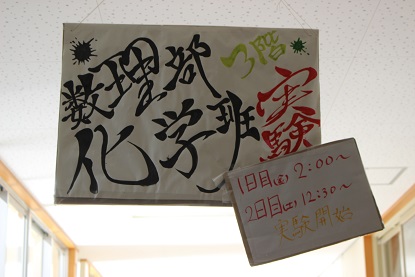 数理部
3階
化学班
実験
1日目(金) 2:00〜
2日目(土) 12:30〜
実験開始